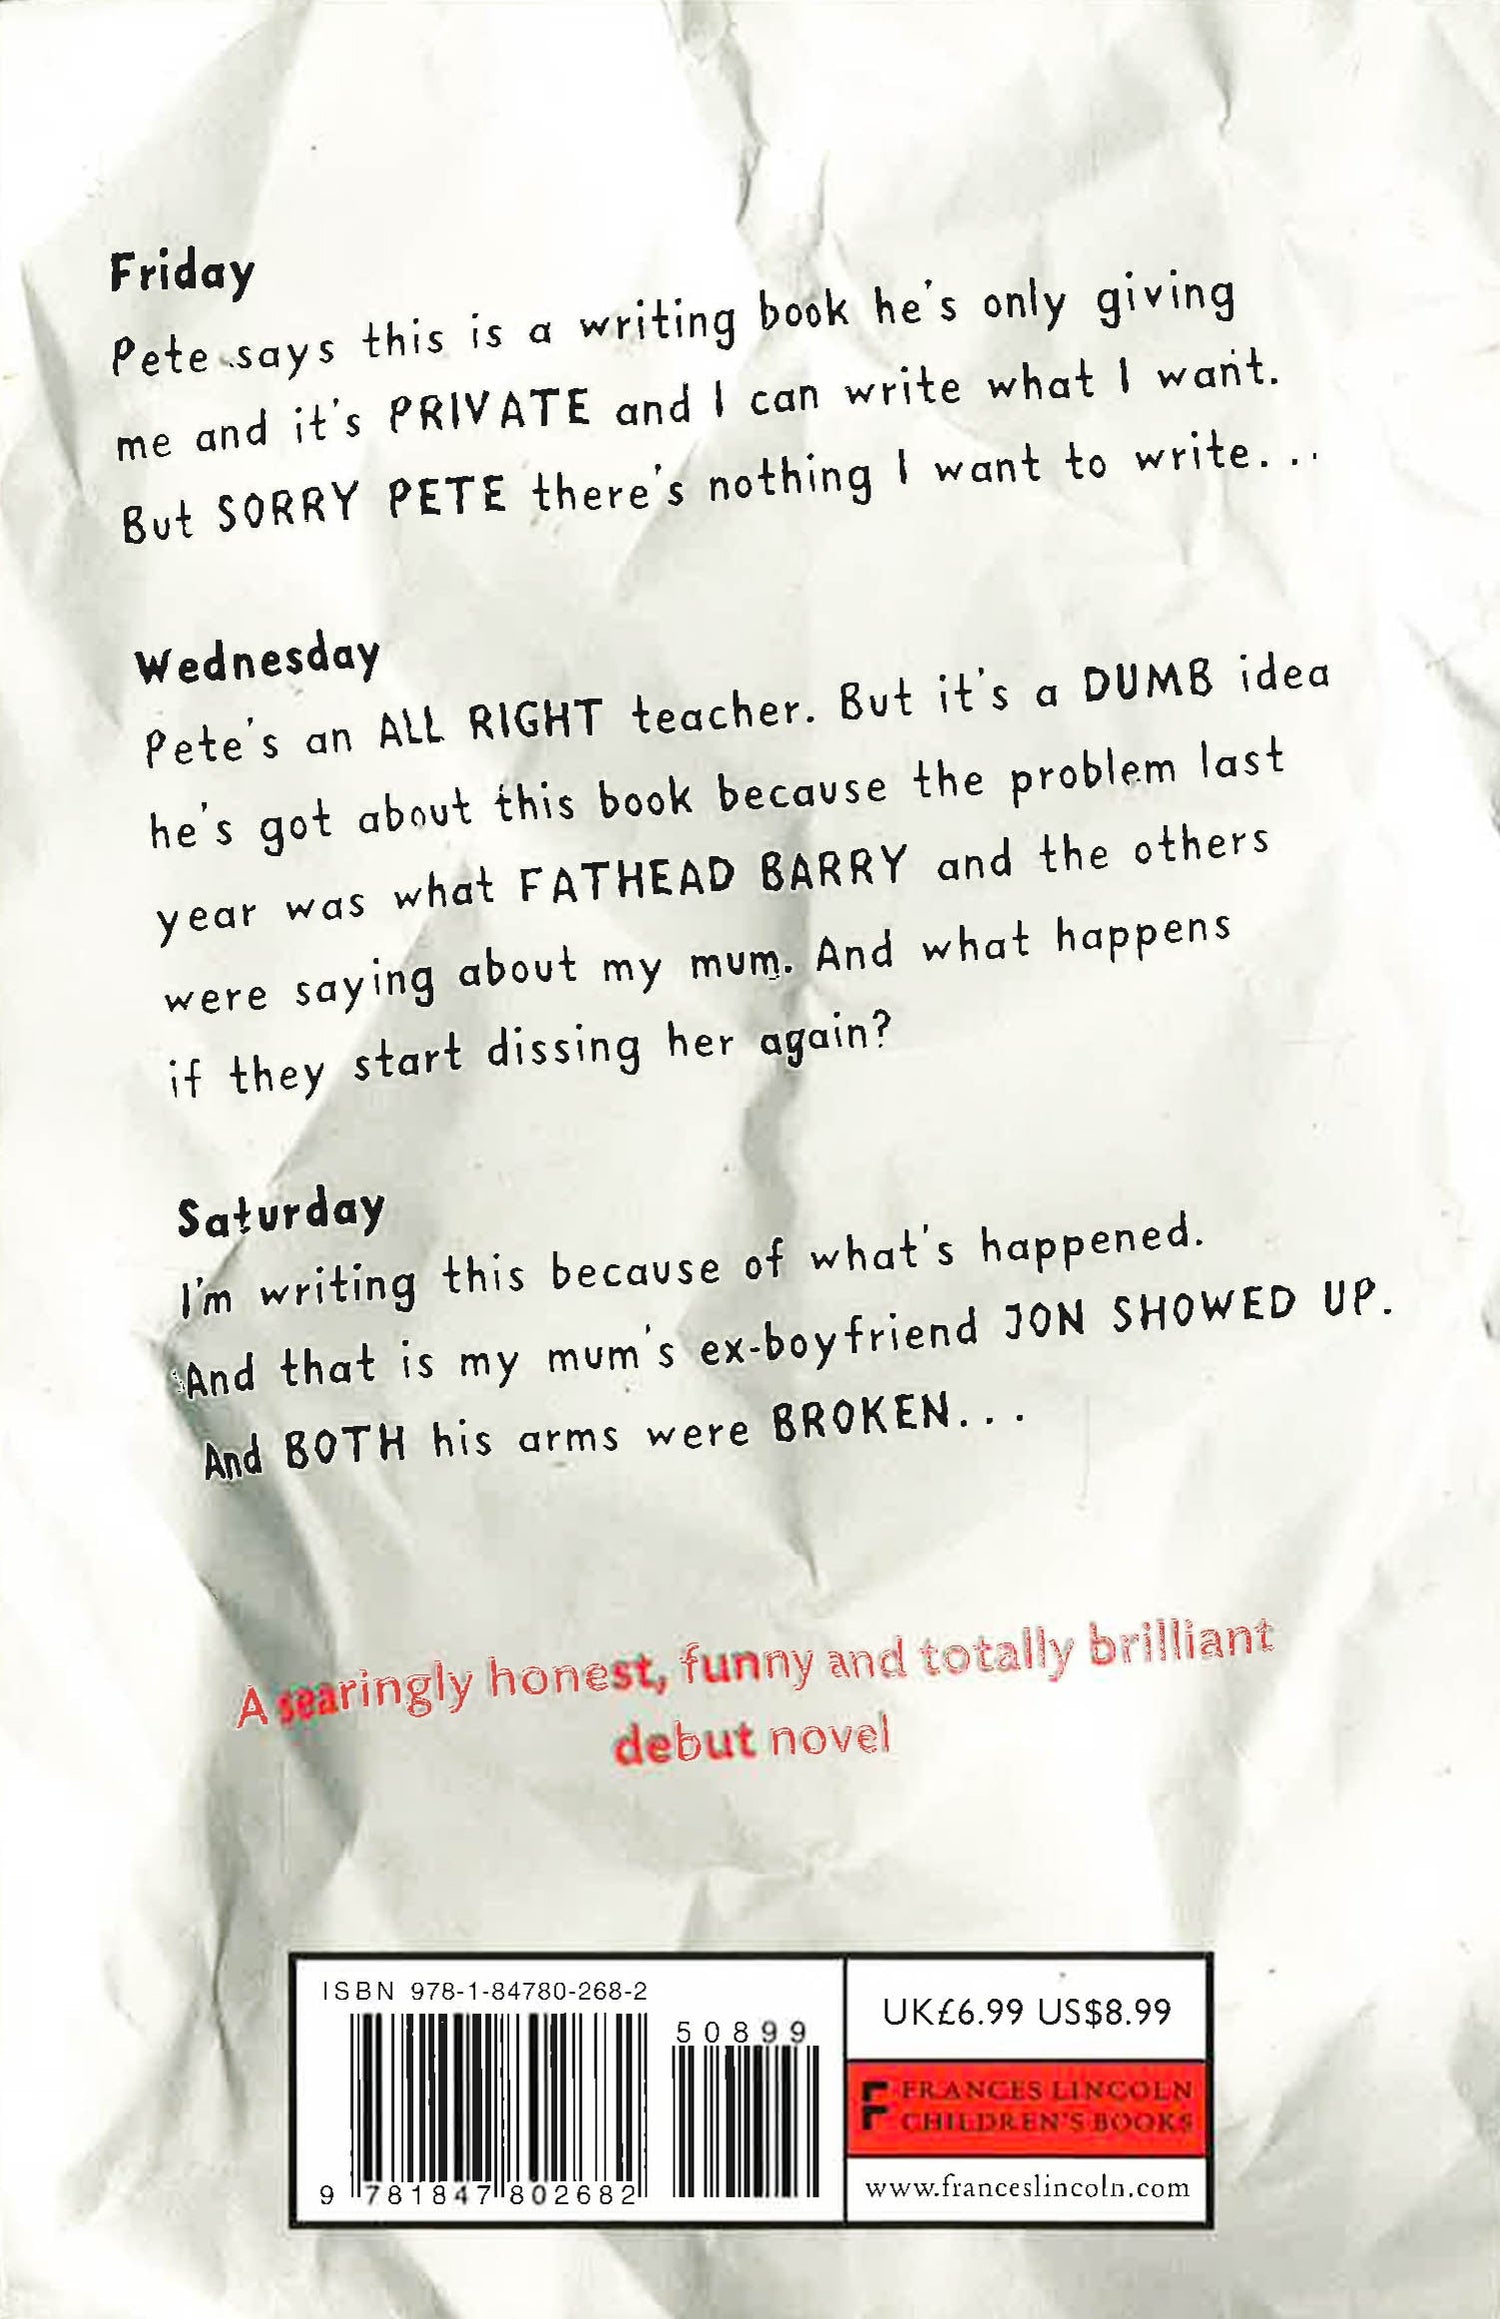 Friday
Pete says this is a writing book he's only giving
me and it's PRIVATE and I can write what I want.
But SORRY PETE there's nothing I want to write. . .
Wednesday
Pete's an ALL RIGHT teacher. But it's a DUMB idea
he's got about this book because the problem last
year was what FATHEAD BARRY and the others
were saying about my mum. And what happens
if they start dissing her again?
Saturday
I'm writing this because of what's happened.
And that is my mum's ex-boyfriend JON SHOWED UP.
And BOTH his arms were BROKEN. . .
A searingly honest, funny and totally brilliant
debut novel
ISBN 978-1-84780-268-2
50899
9 781847 802682
UK£6.99 US$8.99
FRANCES LINCOLN
CHILDREN'S BOOKS
www.franceslincoln.com